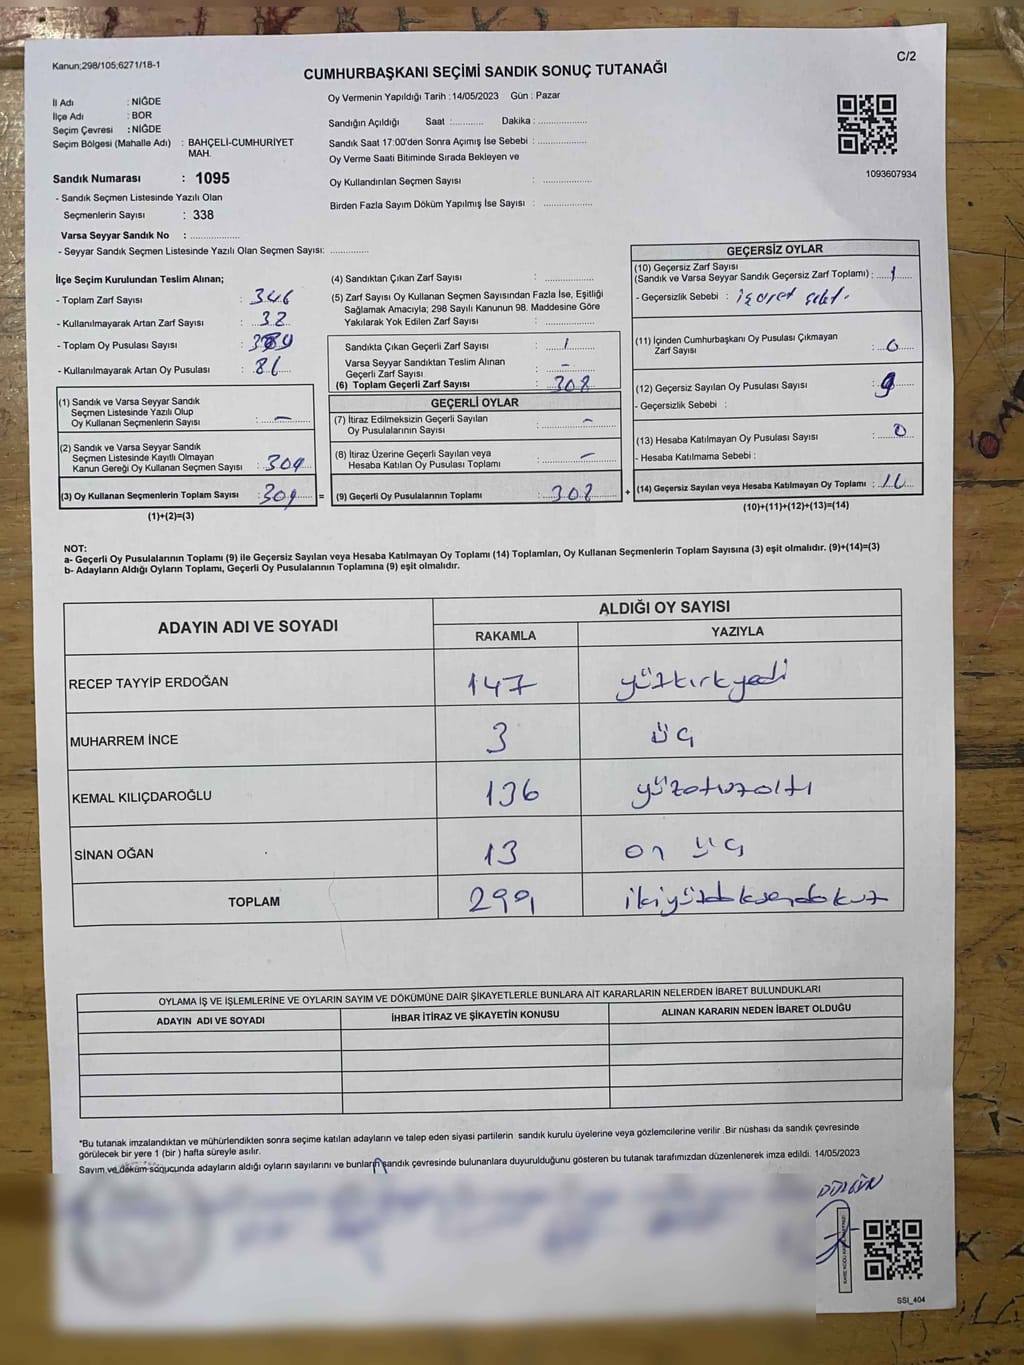 Kanun;298/105;6271/18-1
C/2
CUMHURBAŞKANI SEÇİMİ SANDIK SONUÇ TUTANAĞI
İl Adı : NİĞDE
İlçe Adı : BOR
Seçim Çevresi : NİĞDE
Seçim Bölgesi (Mahalle Adı) : BAHÇELİ-CUMHURİYET
MAH.
Sandık Numarası : 1095
- Sandık Seçmen Listesinde Yazılı Olan
Seçmenlerin Sayısı : 338
Varsa Seyyar Sandık No : ..............
- Seyyar Sandık Seçmen Listesinde Yazılı Olan Seçmen Sayısı: ............
Oy Vermenin Yapıldığı Tarih : 14/05/2023 Gün : Pazar
Sandığın Açıldığı Saat :.......... Dakika : ................
Sandık Saat 17:00'den Sonra Açımış İse Sebebi : ................
Oy Verme Saati Bitiminde Sırada Bekleyen ve
Oy Kullandırılan Seçmen Sayısı : ................
Birden Fazla Sayım Döküm Yapılmış İse Sayısı : ................
1093607934
İlçe Seçim Kurulundan Teslim Alınan;
- Toplam Zarf Sayısı : 346
- Kullanılmayarak Artan Zarf Sayısı : 32
- Toplam Oy Pusulası Sayısı :
- Kullanılmayarak Artan Oy Pusulası : 86
(1) Sandık ve Varsa Seyyar Sandık
Seçmen Listesinde Yazılı Olup
Oy Kullanan Seçmenlerin Sayısı : –
(2) Sandık ve Varsa Seyyar Sandık
Seçmen Listesinde Kayıtlı Olmayan
Kanun Gereği Oy Kullanan Seçmen Sayısı : 309
(3) Oy Kullanan Seçmenlerin Toplam Sayısı : 309 =
(1)+(2)=(3)
(4) Sandıktan Çıkan Zarf Sayısı : ..............
(5) Zarf Sayısı Oy Kullanan Seçmen Sayısından Fazla İse, Eşitliği
Sağlamak Amacıyla; 298 Sayılı Kanunun 98. Maddesine Göre
Yakılarak Yok Edilen Zarf Sayısı : ..............
Sandıkta Çıkan Geçerli Zarf Sayısı : 1
Varsa Seyyar Sandıktan Teslim Alınan
Geçerli Zarf Sayısı : –
(6) Toplam Geçerli Zarf Sayısı : 308
GEÇERLİ OYLAR
(7) İtiraz Edilmeksizin Geçerli Sayılan
Oy Pusulalarının Sayısı : –
(8) İtiraz Üzerine Geçerli Sayılan veya
Hesaba Katılan Oy Pusulası Toplamı : –
(9) Geçerli Oy Pusulalarının Toplamı : 302 +
GEÇERSİZ OYLAR
(10) Geçersiz Zarf Sayısı
(Sandık ve Varsa Seyyar Sandık Geçersiz Zarf Toplamı) : 1
- Geçersizlik Sebebi : işaret
(11) İçinden Cumhurbaşkanı Oy Pusulası Çıkmayan
Zarf Sayısı : 0
(12) Geçersiz Sayılan Oy Pusulası Sayısı : 9
- Geçersizlik Sebebi :
(13) Hesaba Katılmayan Oy Pusulası Sayısı : 0
- Hesaba Katılmama Sebebi :
(14) Geçersiz Sayılan veya Hesaba Katılmayan Oy Toplamı :
(10)+(11)+(12)+(13)=(14)
NOT:
a- Geçerli Oy Pusulalarının Toplamı (9) ile Geçersiz Sayılan veya Hesaba Katılmayan Oy Toplamı (14) Toplamları, Oy Kullanan Seçmenlerin Toplam Sayısına (3) eşit olmalıdır. (9)+(14)=(3)
b- Adayların Aldığı Oyların Toplamı, Geçerli Oy Pusulalarının Toplamına (9) eşit olmalıdır.
ADAYIN ADI VE SOYADI ALDIĞI OY SAYISI
RAKAMLA YAZIYLA
RECEP TAYYİP ERDOĞAN 147 yüzkırkyedi
MUHARREM İNCE 3 üç
KEMAL KILIÇDAROĞLU 136 yüzotuzaltı
SİNAN OĞAN 13 on üç
TOPLAM 299 ikiyüzdoksandokuz
OYLAMA İŞ VE İŞLEMLERİNE VE OYLARIN SAYIM VE DÖKÜMÜNE DAİR ŞİKAYETLERLE BUNLARA AİT KARARLARIN NELERDEN İBARET BULUNDUKLARI
ADAYIN ADI VE SOYADI İHBAR İTİRAZ VE ŞİKAYETİN KONUSU ALINAN KARARIN NEDEN İBARET OLDUĞU
*Bu tutanak imzalandıktan ve mühürlendikten sonra seçime katılan adayların ve talep eden siyasi partilerin sandık kurulu üyelerine veya gözlemcilerine verilir .Bir nüshası da sandık çevresinde
görülecek bir yere 1 (bir ) hafta süreyle asılır.
Sayım ve döküm sonucunda adayların aldığı oyların sayılarını ve bunların sandık çevresinde bulunanlara duyurulduğunu gösteren bu tutanak tarafımızdan düzenlenerek imza edildi. 14/05/2023
SSI_404